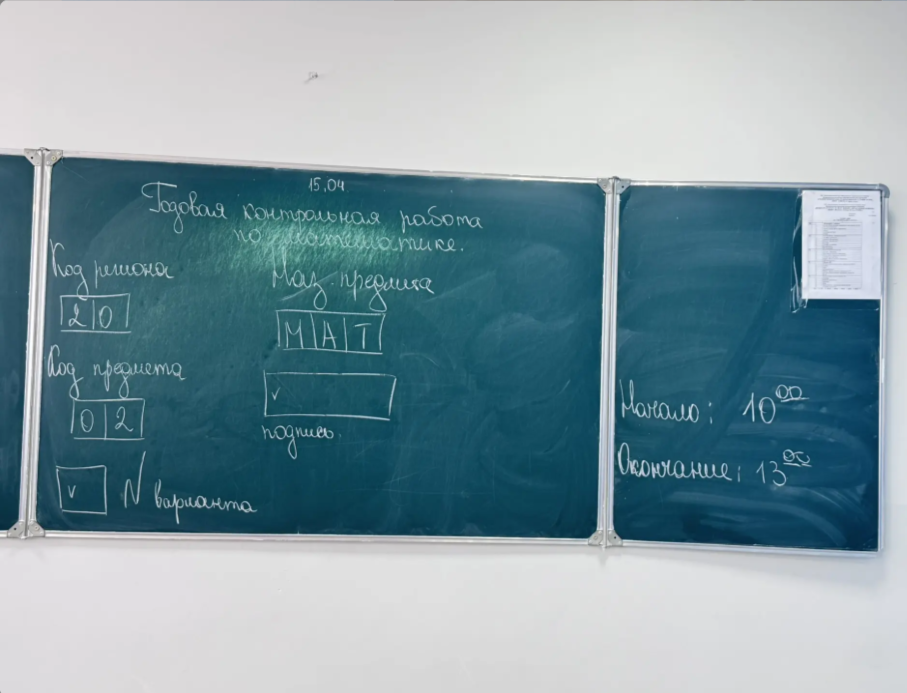 15.04
Годовая контрольная работа
по математике.
Код региона
20
Наз. предмета
МАТ
Код предмета
02
v
подпись.
v N варианта
Начало: 10 00
Окончание: 13 00